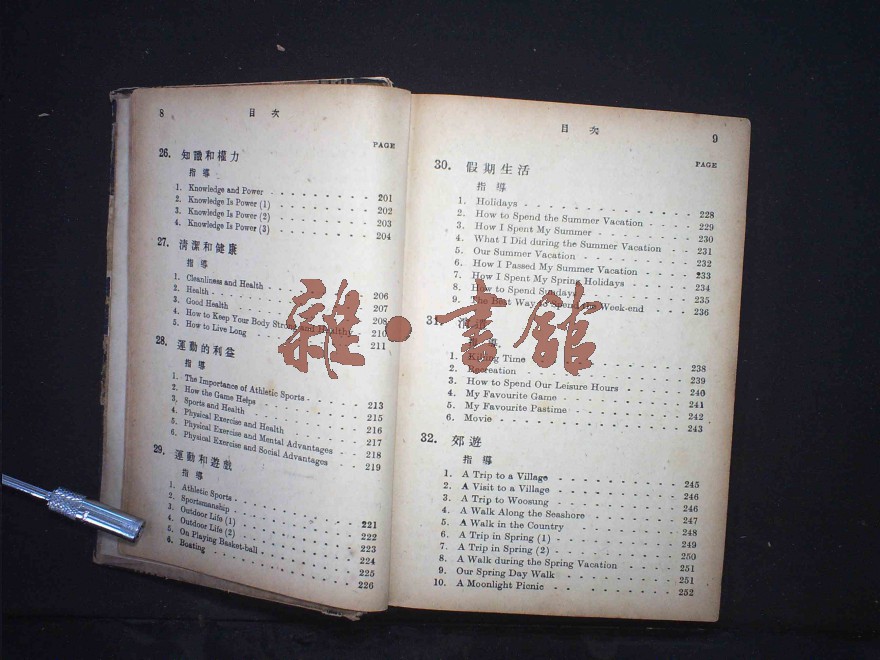 8 目次
PAGE
26. 知識和權力
指導
1. Knowledge and Power 201
2. Knowledge Is Power (1) 202
3. Knowledge Is Power (2) 203
4. Knowledge Is Power (3) 204
27. 清潔和健康
指導
1. Cleanliness and Health 206
2. Health 207
3. Good Health 208
4. How to Keep Your Body Strong and Healthy 210
5. How to Live Long 211
28. 運動的利益
指導
1. The Importance of Athletic Sports 213
2. How the Game Helps 215
3. Sports and Health 216
4. Physical Exercise and Health 217
5. Physical Exercise and Mental Advantages 218
6. Physical Exercise and Social Advantages 219
29. 運動和遊戲
指導
1. Athletic Sports 221
2. Sportsmanship 222
3. Outdoor Life (1) 223
4. Outdoor Life (2) 224
5. On Playing Basket-ball 225
6. Boating 226
目次 9
PAGE
30. 假期生活
指導
1. Holidays 228
2. How to Spend the Summer Vacation 229
3. How I Spent My Summer 230
4. What I Did during the Summer Vacation 231
5. Our Summer Vacation 232
6. How I Passed My Summer Vacation 233
7. How I Spent My Spring Holidays 234
8. How to Spend Sundays 235
9. The Best Way to Spend the Week-end 236
31. 消遣
指導
1. Killing Time 238
2. Recreation 239
3. How to Spend Our Leisure Hours 240
4. My Favourite Game 241
5. My Favourite Pastime 242
6. Movie 243
32. 郊遊
指導
1. A Trip to a Village 245
2. A Visit to a Village 246
3. A Trip to Woosung 246
4. A Walk Along the Seashore 247
5. A Walk in the Country 248
6. A Trip in Spring (1) 249
7. A Trip in Spring (2) 250
8. A Walk during the Spring Vacation 251
9. Our Spring Day Walk 251
10. A Moonlight Picnic 252
雜·書館